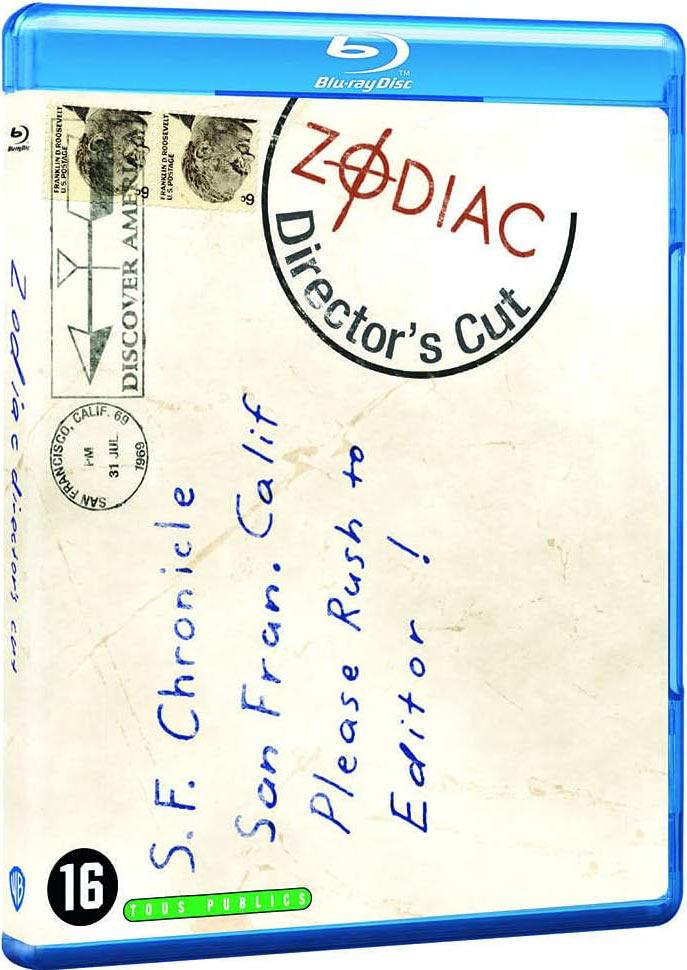 Blu-ray Disc™
Blu-ray Disc
FRANKLIN D. ROOSEVELT
U.S. POSTAGE
6¢
FRANKLIN D. ROOSEVELT
U.S. POSTAGE
6¢
DISCOVER AMERICA
SAN FRANCISCO, CALIF. 69
PM
31 JUL
1969
ZODIAC
Director's Cut
S.F. Chronicle
San Fran. Calif
Please Rush to
Editor!
Zodiac director's cut
WB
16
TOUS PUBLICS